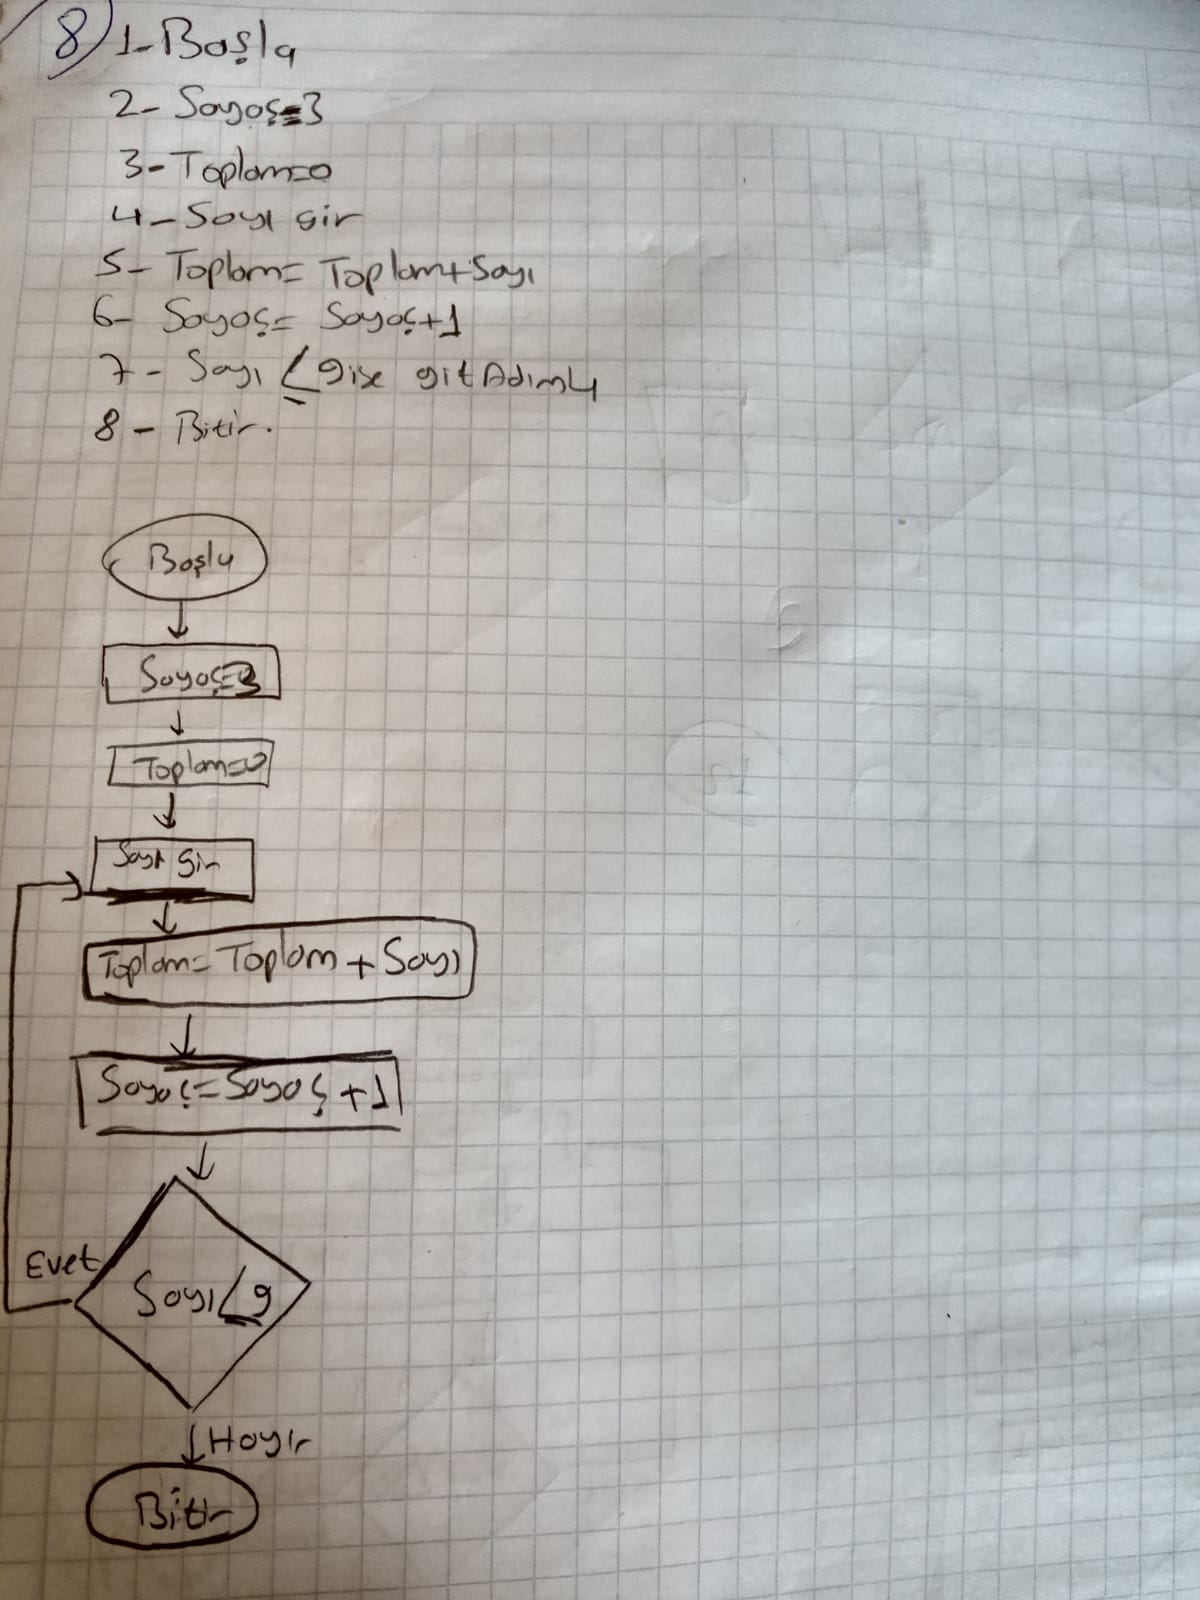 8) 1- Başla
2- Sayaç=3
3- Toplam=0
4- Sayı gir
5- Toplam= Toplam+Sayı
6- Sayaç= Sayaç+1
7- Sayı ≤ 9 ise git Adım 4
8- Bitir.
Başla
Sayaç=3
Toplam=0
Sayı gir
Toplam= Toplam + Sayı
Sayaç=Sayaç+1
Evet
Sayı≤9
Hayır
Bitir